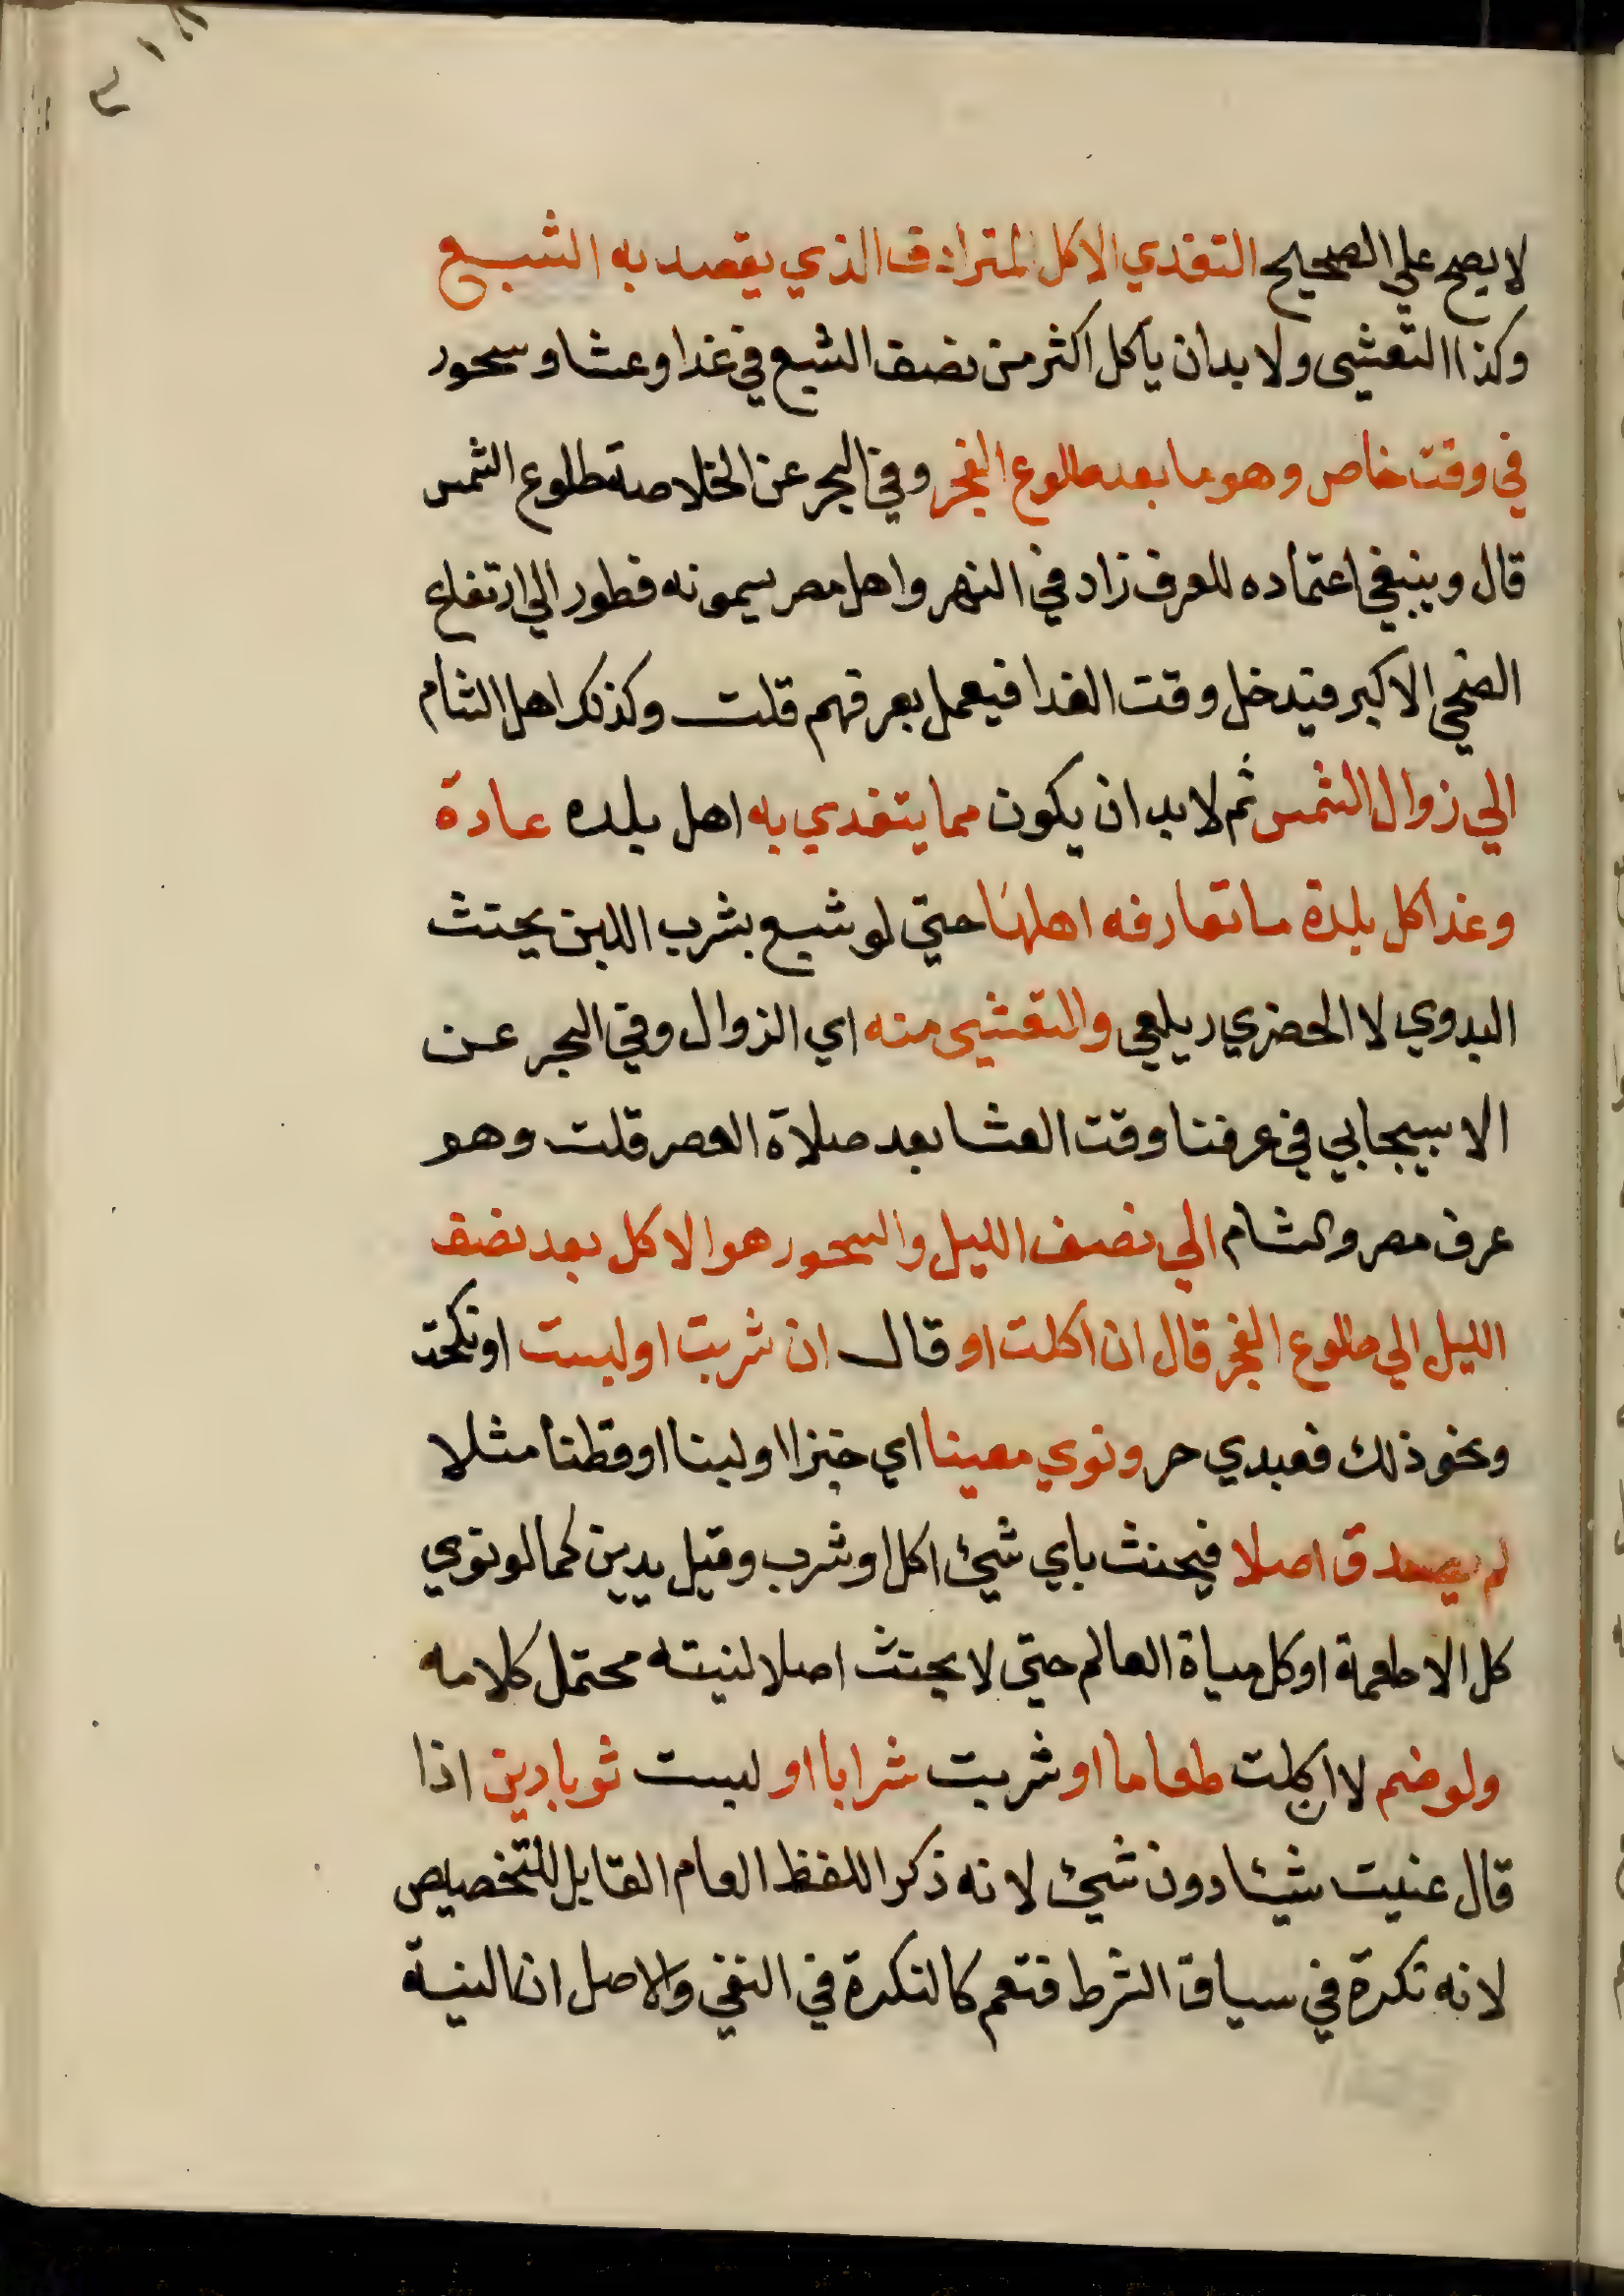 ٣١٨
لا يصح علي الصحيح التغدي الاكل المترادف الذي يقصد به الشبع
وكذا التعشي ولا بد ان ياكل اكثر من نصف الشبع في غدا وعشا وسحور
في وقت خاص وهو ما بعد طلوع الفجر وفي البحر عن الخلاصة طلوع الشمس
قال وينبغي اعتماده للعرف زاد في النهر واهل مصر يسمونه فطور الي ارتفاع
الضحي الاكبر فيدخل وقت الغدا فيعمل بعرفهم قلت وكذلك اهل الشام
الي زوال الشمس ثم لا بد ان يكون مما يتغدي به اهل بلده عادة
وغدا كل بلدة ما تعارفه اهلها حتي لو شبع بشرب اللبن يحنث
البدوي لا الحضري زيلعي والتعشي منه اي الزوال وفي البحر عن
الاسبيجابي في عرفنا وقت العشا بعد صلاة العصر قلت وهو
عرف مصر والشام الي نصف الليل والسحور هو الاكل بعد نصف
الليل الي طلوع الفجر قال ان اكلت او قال ان شربت او لبست او نكحت
ونحو ذلك فعبدي حر ونوي معينا اي خبزا او لبنا او قطنا مثلا
لم يصدق اصلا فيحنث باي شيئ اكل او شرب وقيل يدين كما لو نوي
كل الاطعمة او كل مياة العالم حتي لا يحنث اصلا لنيته محتمل كلامه
ولو ضم لا اكلت طعاما او شربت شرابا او لبست ثوبا دين اذا
قال عنيت شيئا دون شيئ لانه ذكر اللفظ العام القابل للتخصيص
لانه نكرة في سياق الشرط فتعم كالنكرة في النفي والاصل ان النية